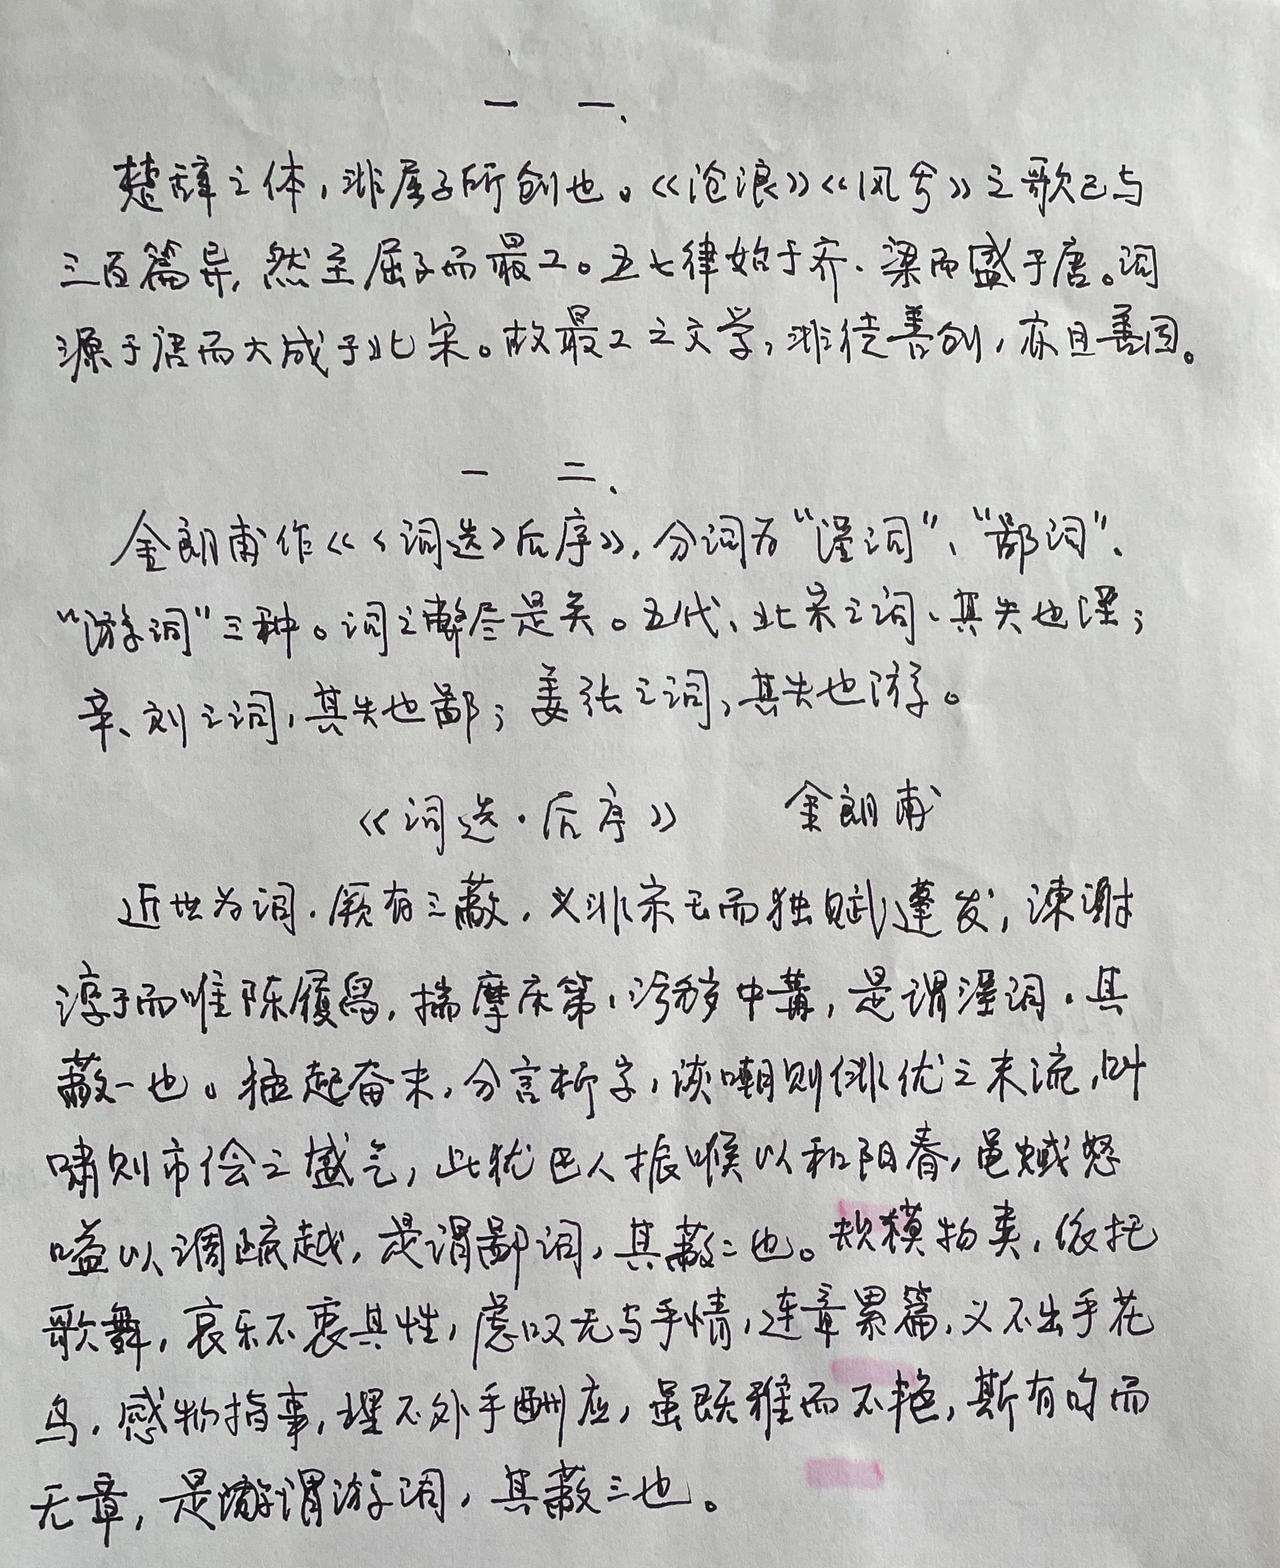 一一、
楚辞之体，非屈子所创也。《沧浪》《凤兮》之歌已与
三百篇异，然至屈子而最工。五七律始于齐、梁而盛于唐。词
源于唐而大成于北宋。故最工之文学，非徒善创，亦且善因。
一二、
金朗甫作《〈词选〉后序》，分词为“淫词”、“鄙词”、
“游词”三种。词之弊尽是矣。五代、北宋之词、其失也淫；
辛、刘之词，其失也鄙；姜张之词，其失也游。
《词选·后序》 金朗甫
近世为词，厥有三蔽，义非宋玉而独赋蓬发，谏谢
淳于而唯陈履舄，揣摩床第，污秽中冓，是谓淫词，其
蔽一也。猛起奋末，分言析字，诙嘲则俳优之末流，叫
啸则市侩之盛气，此犹巴人振喉以和阳春，黾蜮怒
嗌以调疏越，是谓鄙词，其蔽二也。规模物类，依托
歌舞，哀乐不衷其性，虑叹无与乎情，连章累篇，义不出乎花
鸟，感物指事，理不外乎酬应，虽既雅而不艳，斯有句而
无章，是谓游词，其蔽三也。